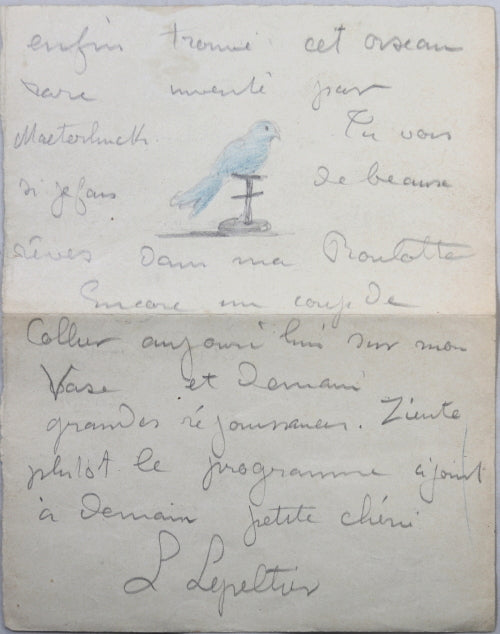 enfin trouvé cet oiseau
rare inventé par
Maeterlinck. Tu vois
si je fais de beaux
rêves dans ma Roulotte
Encore un coup de
Collier aujourd'hui sur mon
Vase et Demain
grandes réjouissances. Ziente
plutot le programme ajoint
à Demain petite chéri
L Lepeltier